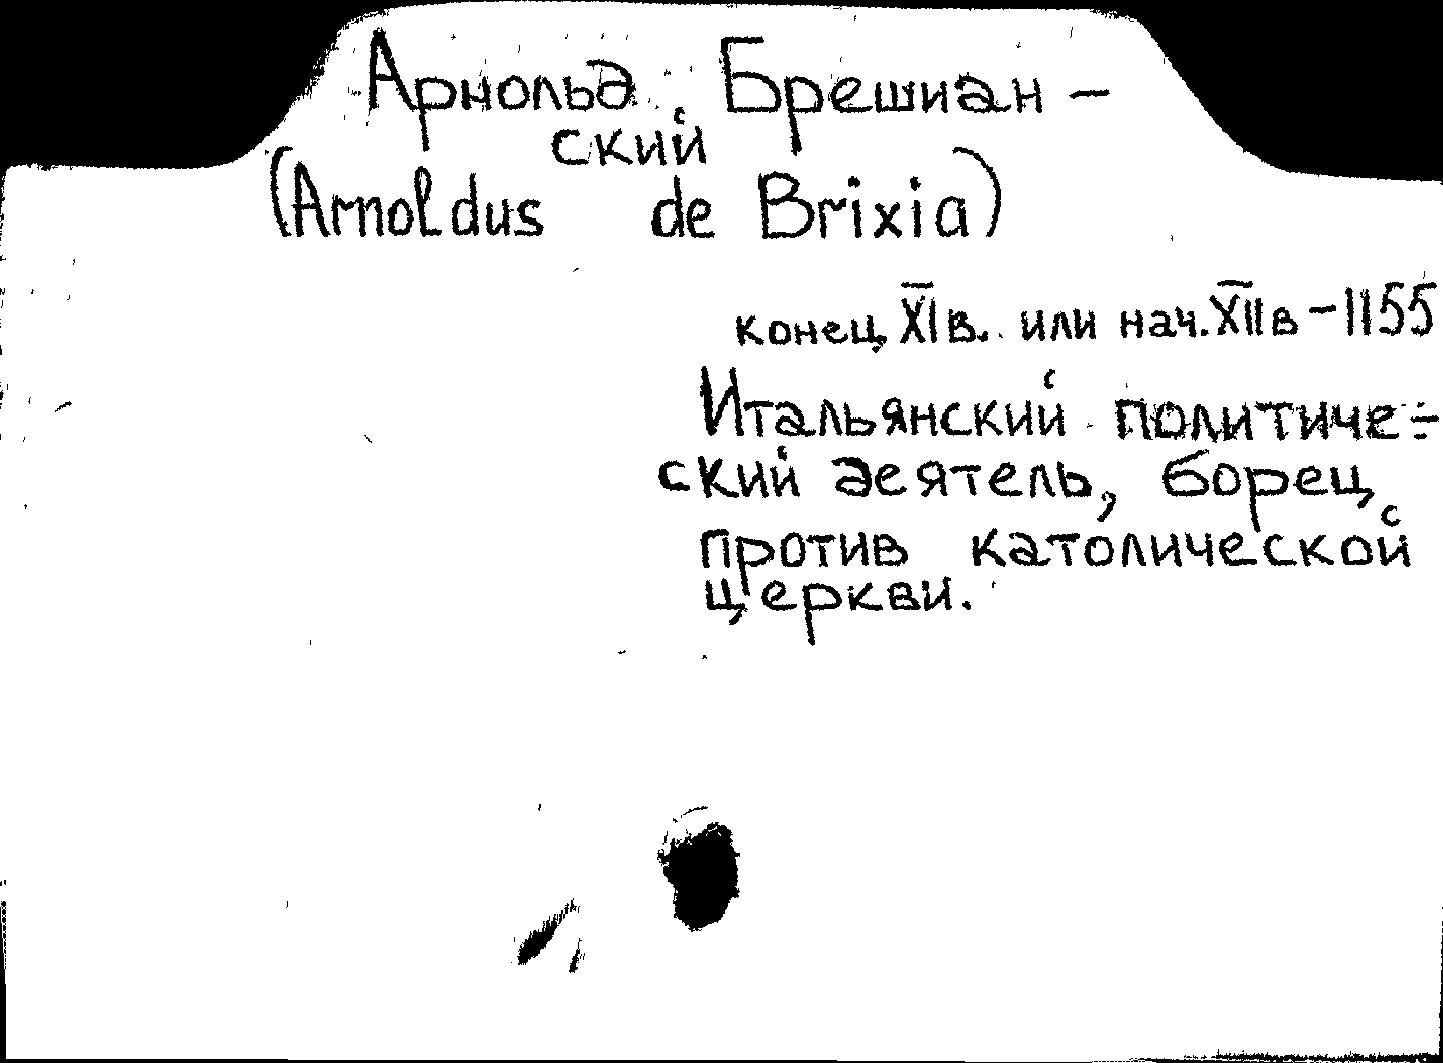 Арнольд Брешиан-
ский
(Arnoldus de Brixia)
конец XI в. или нач. XII в - 1155
Итальянский политиче-
ский деятель, борец
против католической
церкви.